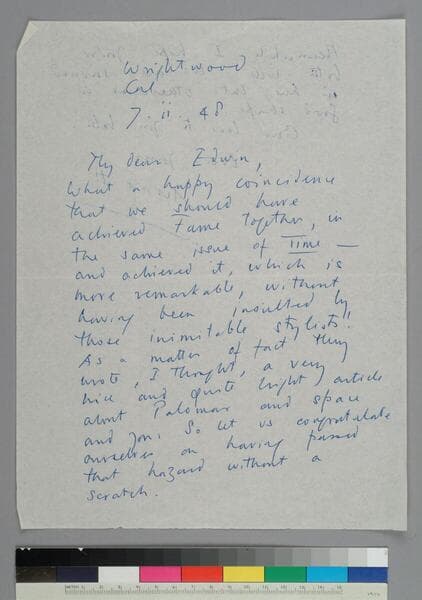 Wrightwood
Cal
7. ii. 48
My dear Edwin,
What a happy coincidence
that we should have
achieved fame together, in
the same issue of Time —
and achieved it, which is
more remarkable, without
having been insulted by
those inimitable stylists!
As a matter of fact they
wrote, I thought, a very
nice and quite bright article
about Palomar and space
and you. So let us congratulate
ourselves on having passed
that hazard without a
scratch.